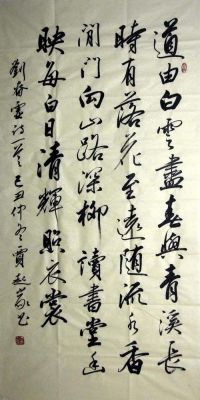 道由白雲盡春與青溪長
時有落花至遠随流水香
閒門向山路深柳讀書堂幽
映每白日清輝照衣裳
劉眘虚诗一首己丑仲冬賈